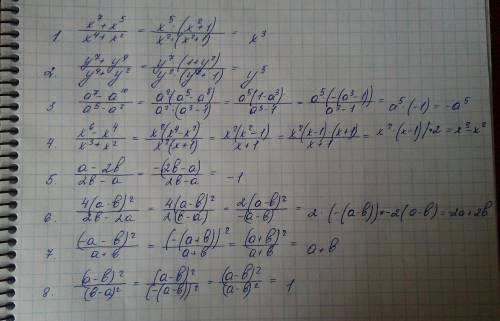 1. (x⁷+x⁵)/(x⁴+x²) = (x⁵·(x²+1))/(x²·(x²+1)) = x³
2. (y⁷+y⁹)/(y⁴+y²) = (y⁷·(1+y²))/(y²(y²+1)) = y⁵
3 (a⁷-a¹⁰)/(a⁵-a²) = (a²(a⁵-a⁸))/(a²·(a³-1)) = (a⁵(1-a³))/(a³-1) = (a⁵(-(a³-1)))/(a³-1) = a⁵·(-1) = -a⁵
4. (x⁶-x⁴)/(x³+x²) = (x²(x⁴-x²))/(x²(x+1)) = (x²(x²-1))/(x+1) = (x²(x-1)·(x+1))/(x+1) = x²·(x-1) = x³-x²
5. (a-2b)/(2b-a) = (-(2b-a))/(2b-a) = -1
6. (4(a-b)²)/(2b-2a) = (4(a-b)²)/(2(b-a)) = (2(a-b)²)/(-(a-b)) = 2·(-(a-b)) = -2(a-b) = -2a+2b
7. ((-a-b)²)/(a+b) = ((-(a+b))²)/(a+b) = ((a+b)²)/(a+b) = a+b
8. ((a-b)²)/((b-a)²) = ((a-b)²)/((-(a-b))²) = ((a-b)²)/((a-b)²) = 1